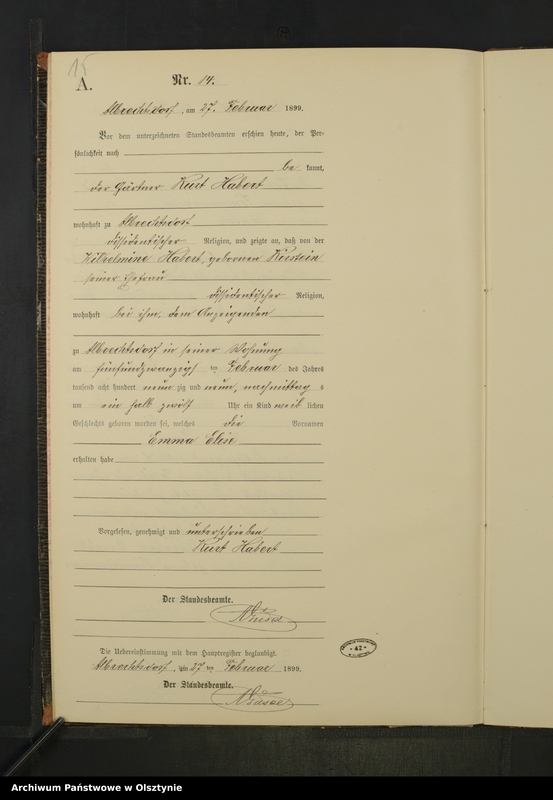 15
A.
Nr. 14.
Albrechtsdorf, am 27. Februar 1899.
Vor dem unterzeichneten Standesbeamten erschien heute, der Per-
sönlichkeit nach
be kannt,
der Gärtner Kurt Habert
wohnhaft zu Albrechtsdorf
dissidentischer Religion, und zeigte an, daß von der
Wilhelmine Habert, gebornen Kirstein
seiner Ehefrau
dissidentischer Religion,
wohnhaft bei ihm, dem Anzeigenden
zu Albrechtsdorf in seiner Wohnung
am fünfundzwanzigsten Februar des Jahres
tausend acht hundert neun zig und neun, nachmittag s
um ein halb zwölf Uhr ein Kind weib lichen
Geschlechts geboren worden sei, welches die Vornamen
Emma Elsie
erhalten habe
Vorgelesen, genehmigt und unterschrieben
Kurt Habert
Der Standesbeamte.
Die Uebereinstimmung mit dem Hauptregister beglaubigt.
Albrechtsdorf, am 27 ten Februar 1899.
Der Standesbeamte.
42
Archiwum Państwowe w Olsztynie